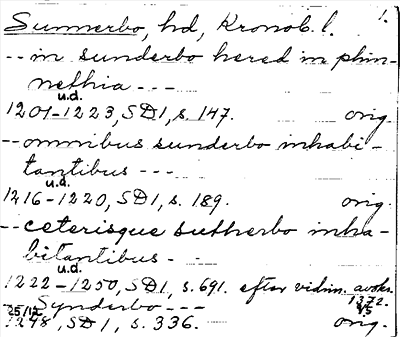 Sunnerbo, hd, Kronob. l. 1.
-- in sunderbo hered in phin-
nethia - - -
u.d.
1201-1223, SD1, s. 147. orig.
-- omnibus sunderbo inhabi-
tantibus - - -
u.d.
1216-1220, SD1, s. 189. orig.
-- ceterisque sutherbo inha-
bitantibus -
u.d.
1222-1250, SD1, s. 691. efter vidim. avskr.
1372.
Synderbo - - -
25/12 1248, SD1, s. 336. orig.